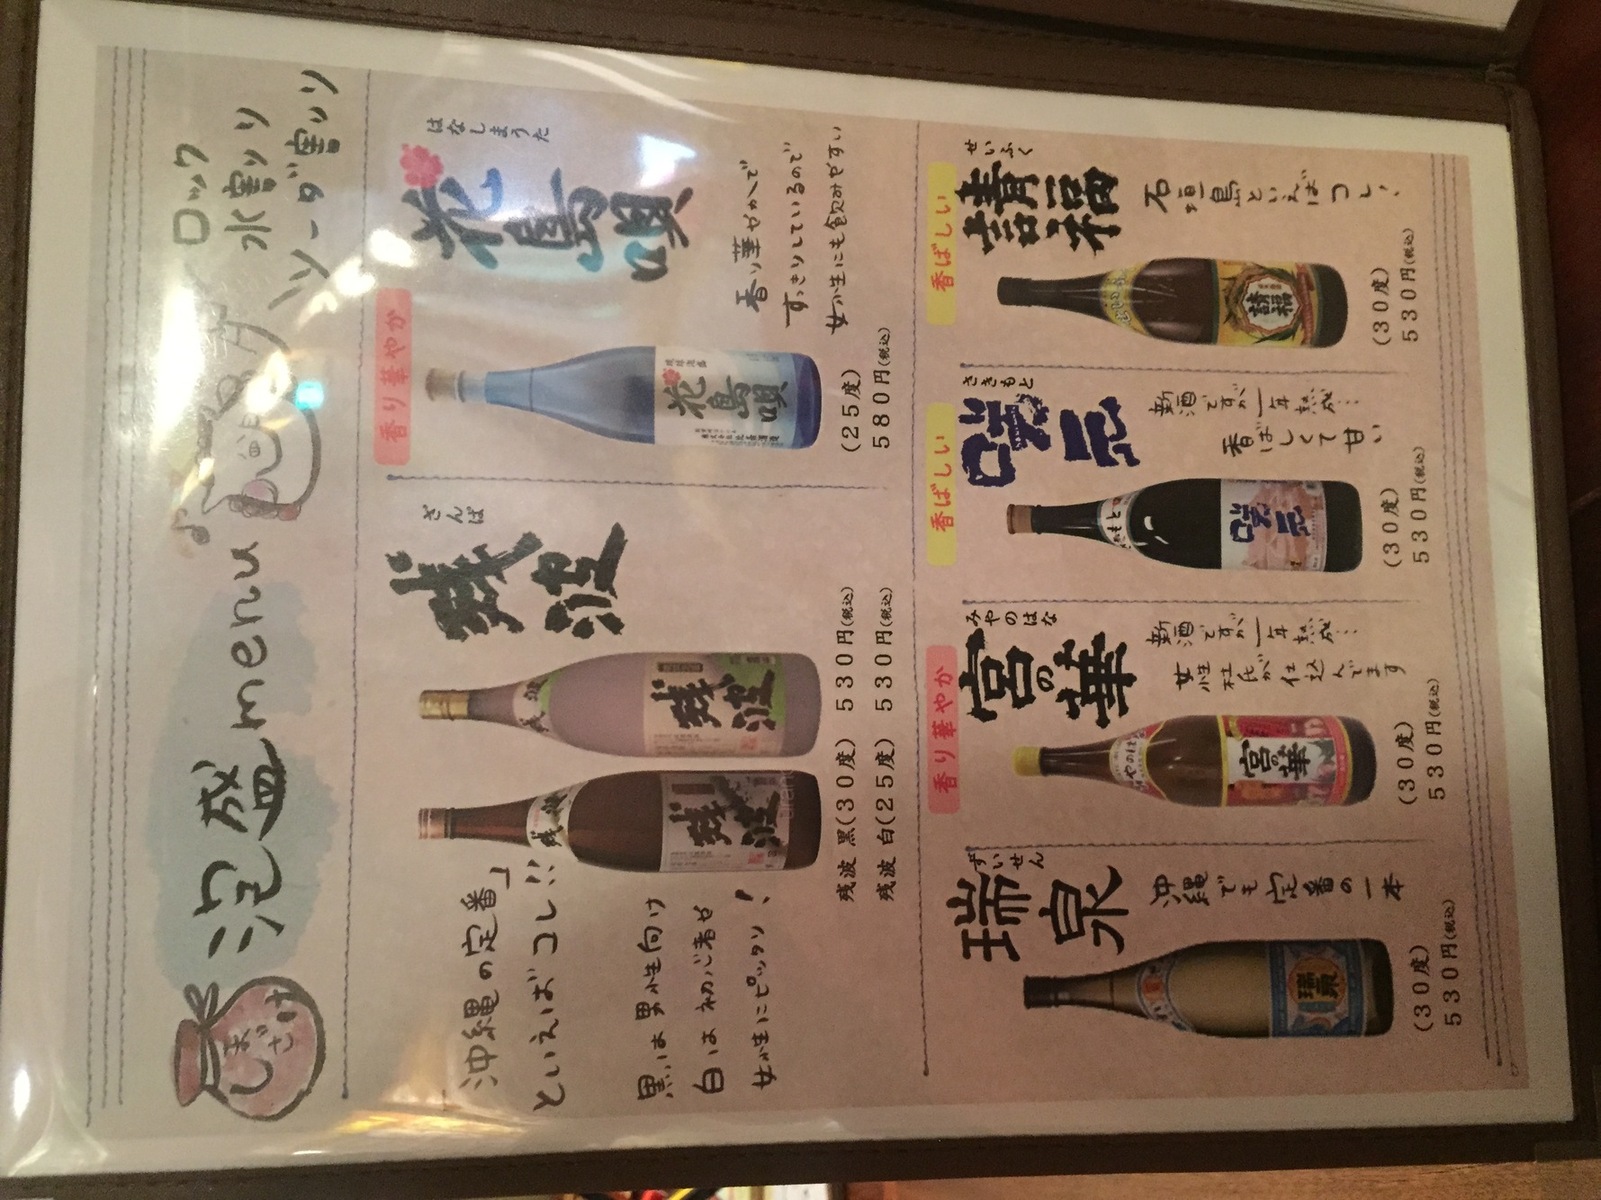 しまざけ
泡盛menu
ロック
水割り
ソーダ割り
「沖縄の定番」
といえばコレ!!
黒は男性向け
白は初心者や
女性にピッタリ!
ざんぱ
残波
残波
残波
残波 黒(30度) 530円(税込)
残波 白(25度) 530円(税込)
香り華やか
はなしまうた
花島唄
香り華やかで
すっきりしているので
女性にも飲みやすい
琉球泡盛
花島唄
(25度)
580円(税込)
ずいせん
瑞泉
沖縄でも定番の一本
瑞泉
(30度)
530円(税込)
香り華やか
みやのはな
宮の華
新酒ですが一年熟成…
女性杜氏が仕込んでます
宮の華
(30度)
530円(税込)
香ばしい
さきもと
咲元
新酒ですが一年熟成…
香ばしくて甘い
咲元
(30度)
530円(税込)
香ばしい
せいふく
請福
石垣島といえばコレ!
請福
(30度)
530円(税込)